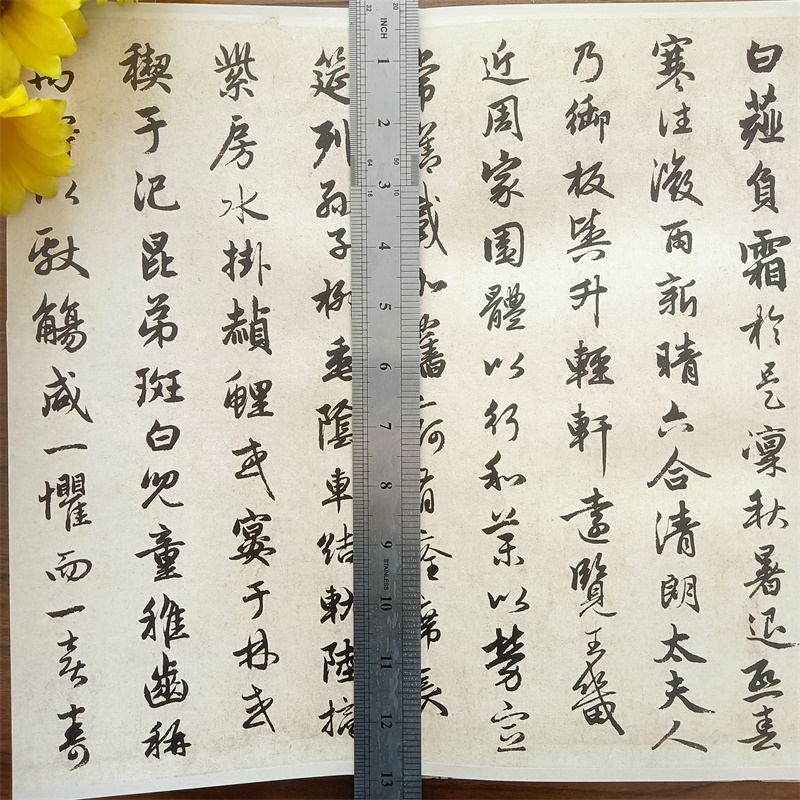 白薤負霜於是凜秋暑退熙春
寒往溦雨新晴六合清朗太夫人
乃御板輿升輕軒遠覽王畿
近周家園體以行和藥以勞宣
常膳載加舊痾有痊席長
筵列孫子柳垂陰車結軌陸擿
紫房水掛赬鯉或宴于林或
禊于汜昆弟斑白兒童稚齒稱
以獻觴咸一懼而一喜壽
32 20
INCH
1
2
64 50
3
16 10
4
5
6
7
8
9
STAINLESS
10
11
12
13